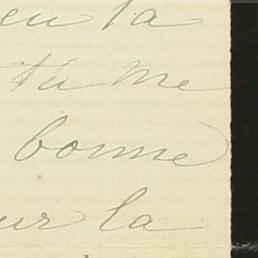 eu la
tu me
bonne
ur la